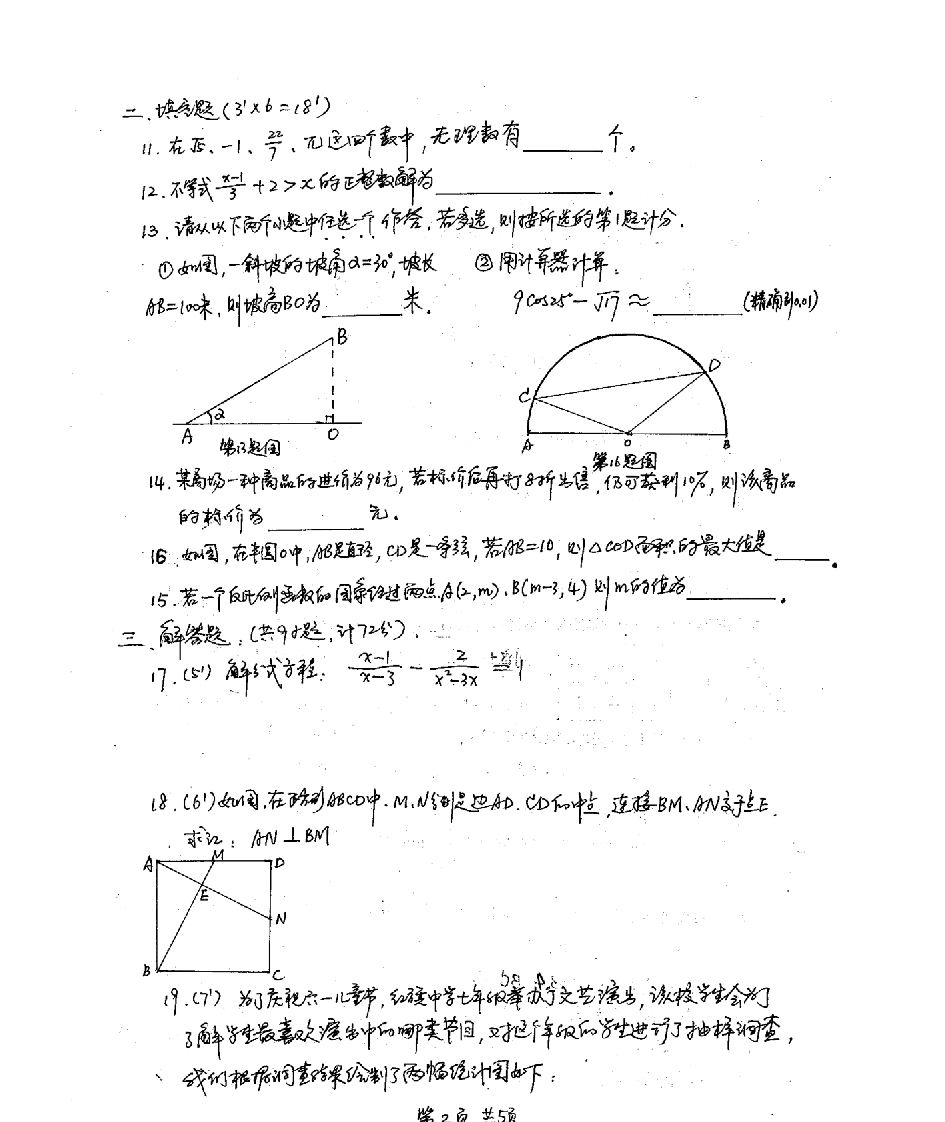 二、填空题(3'×6=18')
11. 在√5、-1、22/7、π这四个数中,无理数有______个。
12. 不等式 (x-1)/3 +2>x的正整数解为____________.
13. 请从以下两个小题中任选一个作答,若多选,则按所选的第1题计分.
①如图,一斜坡的坡角α=30°,坡长 ②用计算器计算:
AB=100米,则坡高BO为______米. 9cos25°-√17≈______(精确到0.01)
B
A α O
第13题图
C D
A O B
第16题图
14. 某商场一种商品的进价为96元,若标价后再打8折出售,仍可获利10%,则该商品
的标价为______元.
16. 如图,在半圆O中,AB是直径,CD是一条弦,若AB=10,则△COD面积的最大值是____.
15. 若一个反比例函数的图象经过两点A(2,m)、B(m-3,4)则m的值为______.
三、解答题:(共9小题,计72分).
17.(5') 解分式方程: (x-1)/(x-3) - 2/(x²-3x)
18.(6')如图,在正方形ABCD中,M、N分别是边AD、CD的中点,连接BM、AN交于点E.
求证:AN⊥BM
A M D
E
N
B C
19.(7') 为了庆祝六一儿童节,红强中学七年级举办了文艺演出,该校学生会为了
了解学生最喜欢演出中的哪类节目,对这个年级的学生进行了抽样调查,
我们根据调查结果绘制了两幅统计图如下:
第2页 共5页